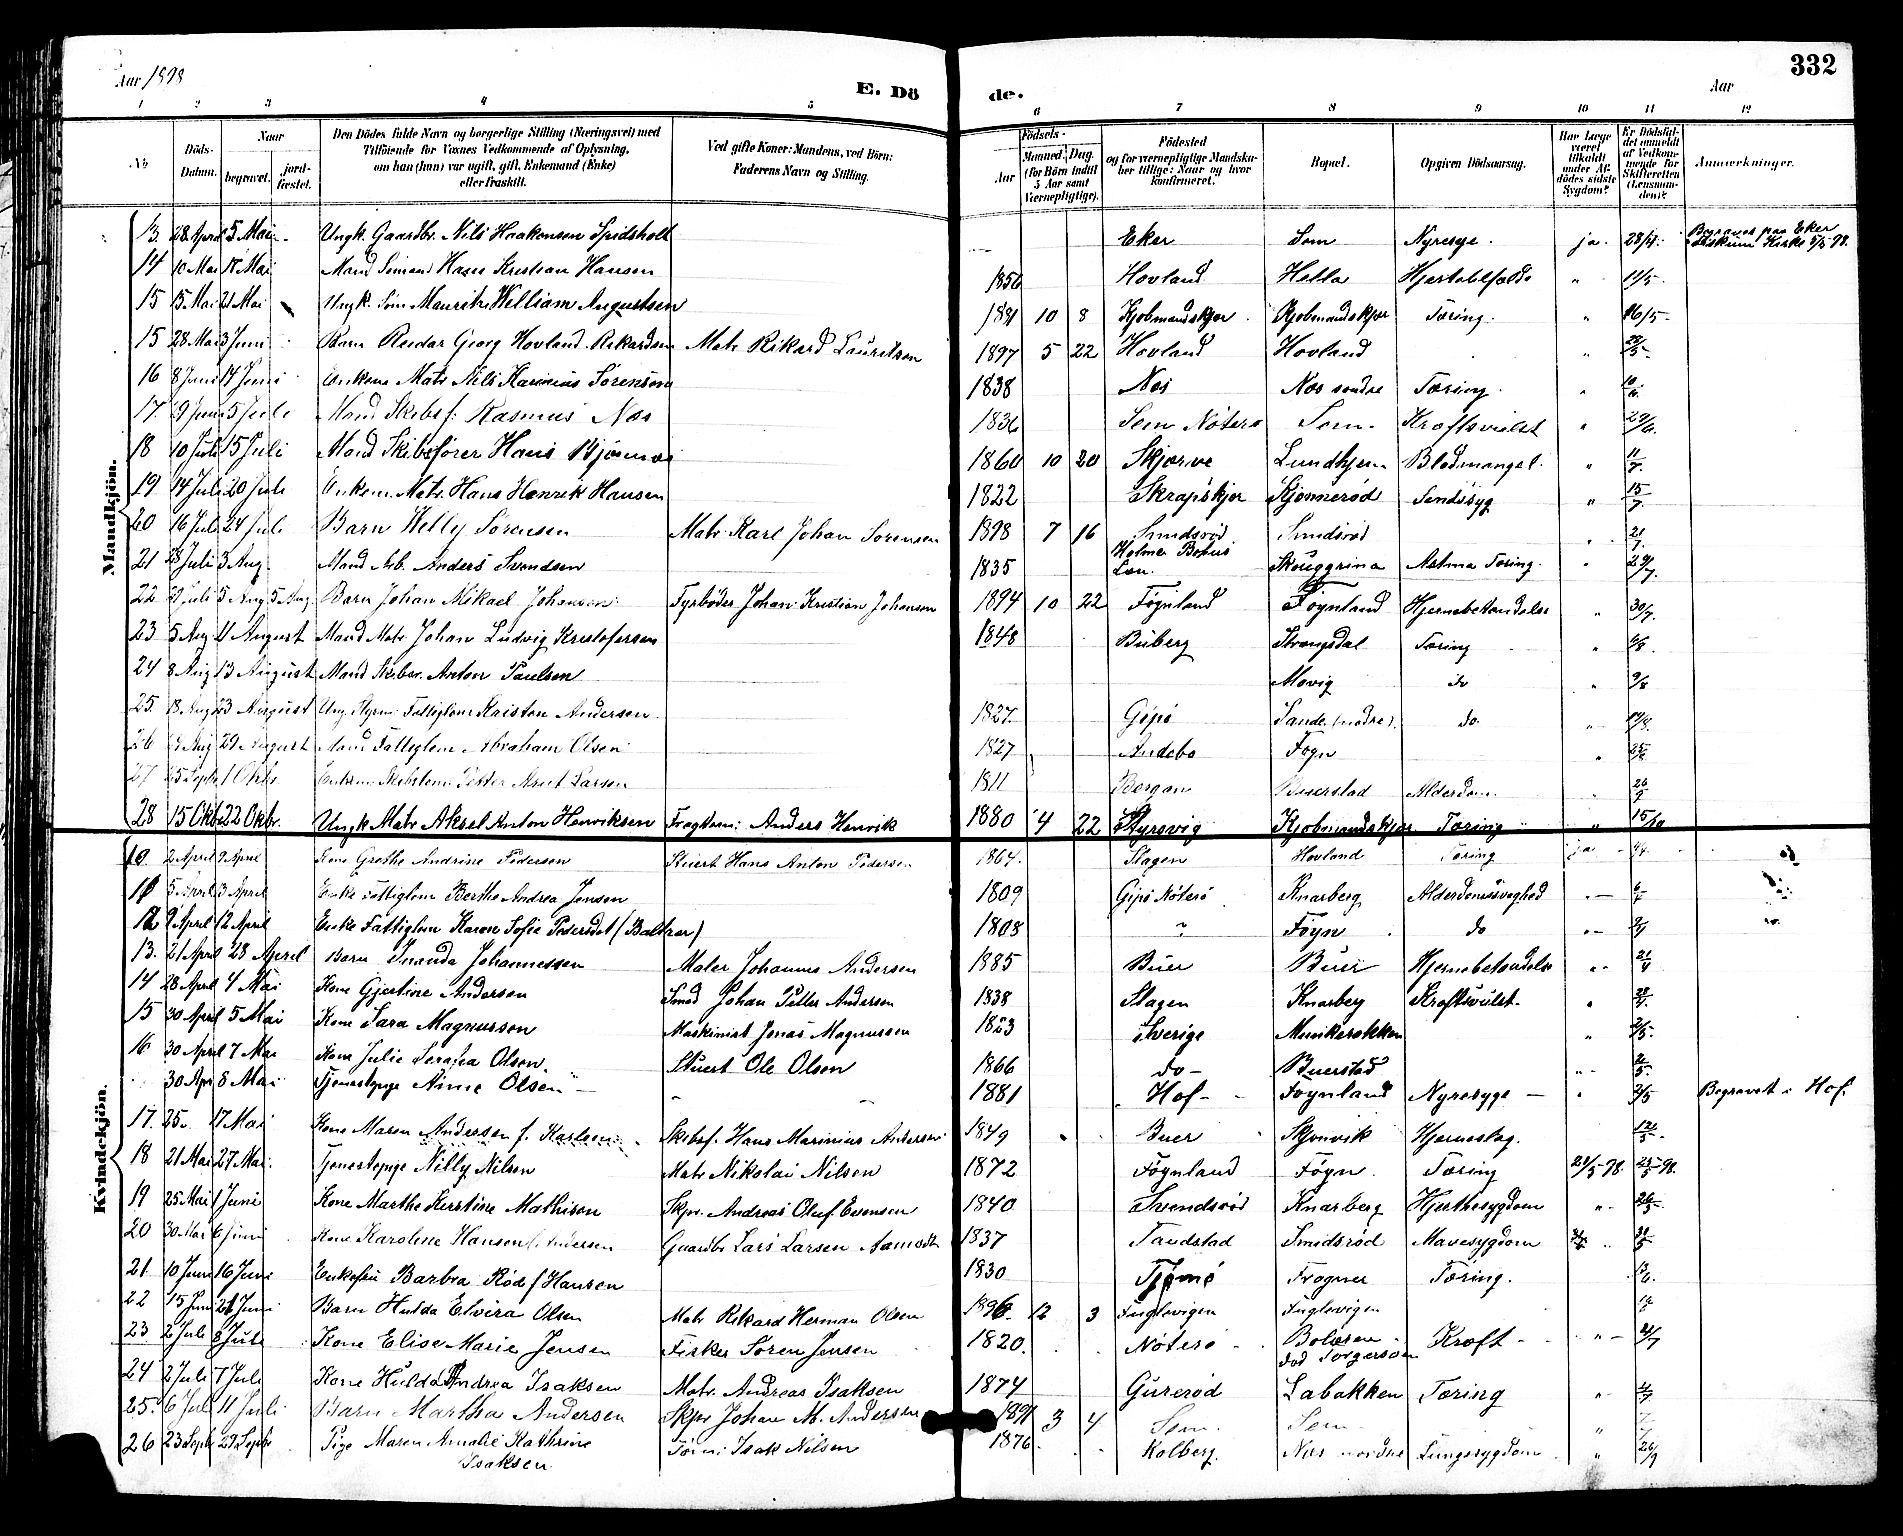 Aar 1898
E. Dö de.
Aar
332
1 2 3 4 5 6 7 8 9 10 11 12
No
Döds-Datum.
Naar
begravet.
jord-fæstet.
Den Dödes fulde Navn og borgerlige Stilling (Næringsvei) med Tilföiende for Voxnes Vedkommende af Oplysning, om han (hun) var ugift, gift, Enkemand (Enke) eller fraskilt.
Ved gifte Koner: Mandens, ved Börn: Faderens Navn og Stilling.
Födsels-
Aar
Maaned. Dag.
(for Börn indtil 5 Aar samt Værnepligtige).
Födested og for værnepligtige Mandskaber tillige: Naar og hvor konfirmeret.
Bopæl.
Opgiven Dödsaarsag.
Har Læge været tilkaldt under Afdödes sidste Sygdom?
Er Dödsfaldet anmeldt af Vedkommende for Skifteretten (Lensmanden)?
Anmærkninger.
Mandkjön.
13. 28 April 5 Mai Ungk. Gaardbr. Nils Haakensen Spidsholt Eker Sem Nyresyge. ja. 28/4. Begravet paa Eker Fiskum Kirke 5/5 98.
14 10 Mai 18 Mai Mand Sömand Hans Kristian Hansen 1856 Hovland Hella Hjerteblfælde " 11/5
15 15 Mai 21 Mai Ungk. Söm Mauritz William Augustsen 1881 10 8 Kjöbmandskjær Kjöbmandskjær Tæring. " 16/5
15 28 Mai 3 Juni Barn Reidar Georg Hovland Rikardsen Matr Rikard Lauritsen 1897 5 22 Hovland Hovland 29/5
16 8 Juni 14 Juni Enkem Matr. Nils Karinius Sørensen 1838 Nes Nes søndre Tæring. 10/6
17. 29 Juni 5 Juli Mand Skibsf: Rasmus Næs 1836 Sem Nøterø Sem. Kræftsvulst " 29/6.
18 10 Juli 15 Juli Mand Skibsfører Hans Bjørnnes 1860 10 20 Skjærve Lundhjem Blodmangel. " 11/7
19 14 Juli 20 Juli Enkem. Matr. Hans Henrik Hansen 1822 Skrapskjer Kjønnerød Sindssyg " 15/7
20 16 Juli 24 Juli Barn Welly Sørensen Matr Karl Johan Sørensen 1898 7 16 Smidsrød Smidsrød " 21/7
21 28 Juli 3 Aug Mand Arb. Anders Svendsen 1835 Holmer Bohus Len. Skouggrina Astma Tæring. " 29/7.
22 29 Juli 5 Aug 5 Aug Barn Johan Mikael Johansen Fyrbøder Johan Kristian Johansen 1894 10 22 Føynland Føynland Hjernebetændelse " 30/7.
23 5 Aug 11 August Mand Matr. Johan Ludvig Kristofersen 1848 Buberg Strengsdal Tæring " 6/8.
24 8 Aug 13 August Mand Skibsr. Anton Paulsen Movig do " 9/8
25. 18 Aug 23 August Fattiglem Kristen Andersen 1827. Gipø Sande (nødre). do. " 19/8.
26 29 August Mand Fattiglem Abraham Olsen 1827 Andebo Føyn "
27 25 Septr 1 Oktb. Enkem. Petter Larsen 1811 Bergan Buerstad Alderdom. " 26/9
28 15 Oktb 22 Oktbr. Ungk. Matr Aksel Anton Henriksen Fragtem: Anders Henrik 1880 4 22 Styrsvig Kjøbmandskjær Tæring " 15/10
Kvindekjön.
10 2 April 9 April Kone Grethe Andrine Pedersen Stuert Hans Anton Pedersen 1864. Slagen Hovland Tæring ja 4/4.
11 5 April 3 April Enke Fattiglem Berthe Andrea Jensen 1809 Gipø Nøterø Knarberg Alderdomssvaghed " 6/4
12 9 April 12 April Enke Fattiglem Karen Sofie Pedersdt (Baltzer) 1808 " Føyn do "
13. 21 April 28 April Barn Johannessen Maler Johannes Andersen 1885 Buer Buer Hjernebetændelse " 21/4
14 28 April 4 Mai Kone Gjertine Andersen Smed Johan Petter Andersen 1838 Slagen Knarberg Kræftsvulst. " 28/4.
15 30 April 5 Mai Kone Sara Magnusson Maskinist Jonas Magnussen 1853 Sverige Munkerekken " 2/5.
16 30 April 7 Mai Kone Julie Serafia Olsen. Stuert Ole Olsen 1866 do - Buerstad " 2/5.
30 Apr 8 Mai Tjenestepige Nime Olsen - 1881 Hof - Føynland Nyresyge - " 2/5 Begravet i Hof.
17. 25. 17 Mai Kone Maren Andersen f. Karlsen Skibsf. Hans Marinius Andersen 1849 Buer Skjenvik Hjerneslag. 12/5.
18 21 Mai 27 Mai. Tjenestepige Nilly Nilsen Matr Nikolai Nilsen 1872 Føynland Føyn. Tæring 21/5 98. 23/5 98.
19 25 Mai 1 Juni Kone Marthe Kirstine Mathisen Skpr. Andreas Oluf Evensen 1840 Svendsrød Knarberg Hjertesygdom " 26/5.
20 30 Mai 6 Juni Kone Karoline Hansen f. Andersen Gaardbr Lars Larsen Aamodt 1837 Tandstad Smidsrød Mavesygdom 31/5
21. 10 Juni 16 Juni Enkefru Barbra Rød f Hansen 1830 Tjømø Frogner Tæring. 13/6.
22 15 Juni 21 Juni Barn Hulda Elvira Olsen Matr Rikard Herman Olsen 1896. 12 3 Fuglevigen Fuglevigen
23 2 Juli 8 Juli Kone Elise Marie Jensen Fisker Søren Jensen 1820. Nøterø Bolæren død Torgersøen Kræft " 2/7
24 2 Juli 7 Juli Kone Hulda Andrea Isaksen Matr. Andreas Isaksen 1874 Gurerød Labakken Tæring " 4/7
25. 6 Juli 11 Juli Barn Martha Andersen Skpr Johan M. Andersen 1891 3 4 Sem. Sem 7/7
26 23 Septb 29 Septbr Pige Maren Amalie Kathrine Isaksen. Tøm: Isak Nilsen 1876. Kolberg. Næs nordre Lungesygdom " 26/9